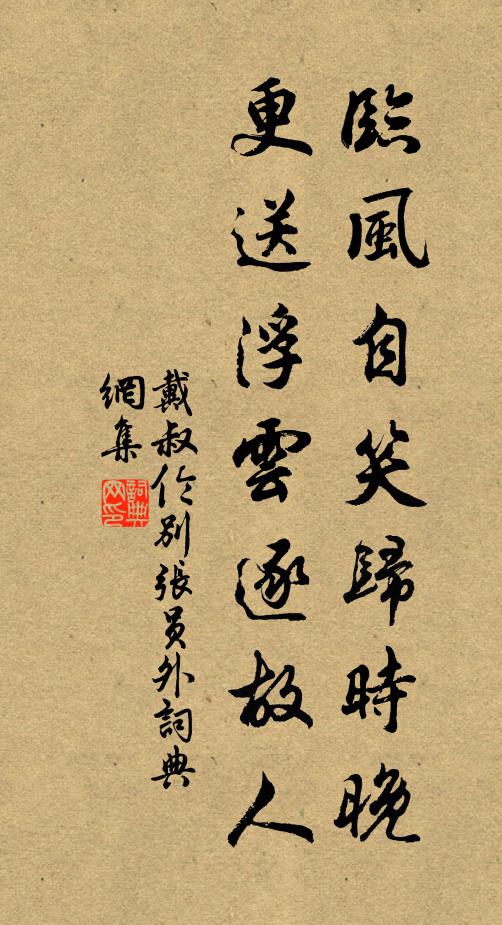 臨風自笑歸時晚
更送浮雲逐故人
戴叔伦別張员外詞典
網集
詞典
网印